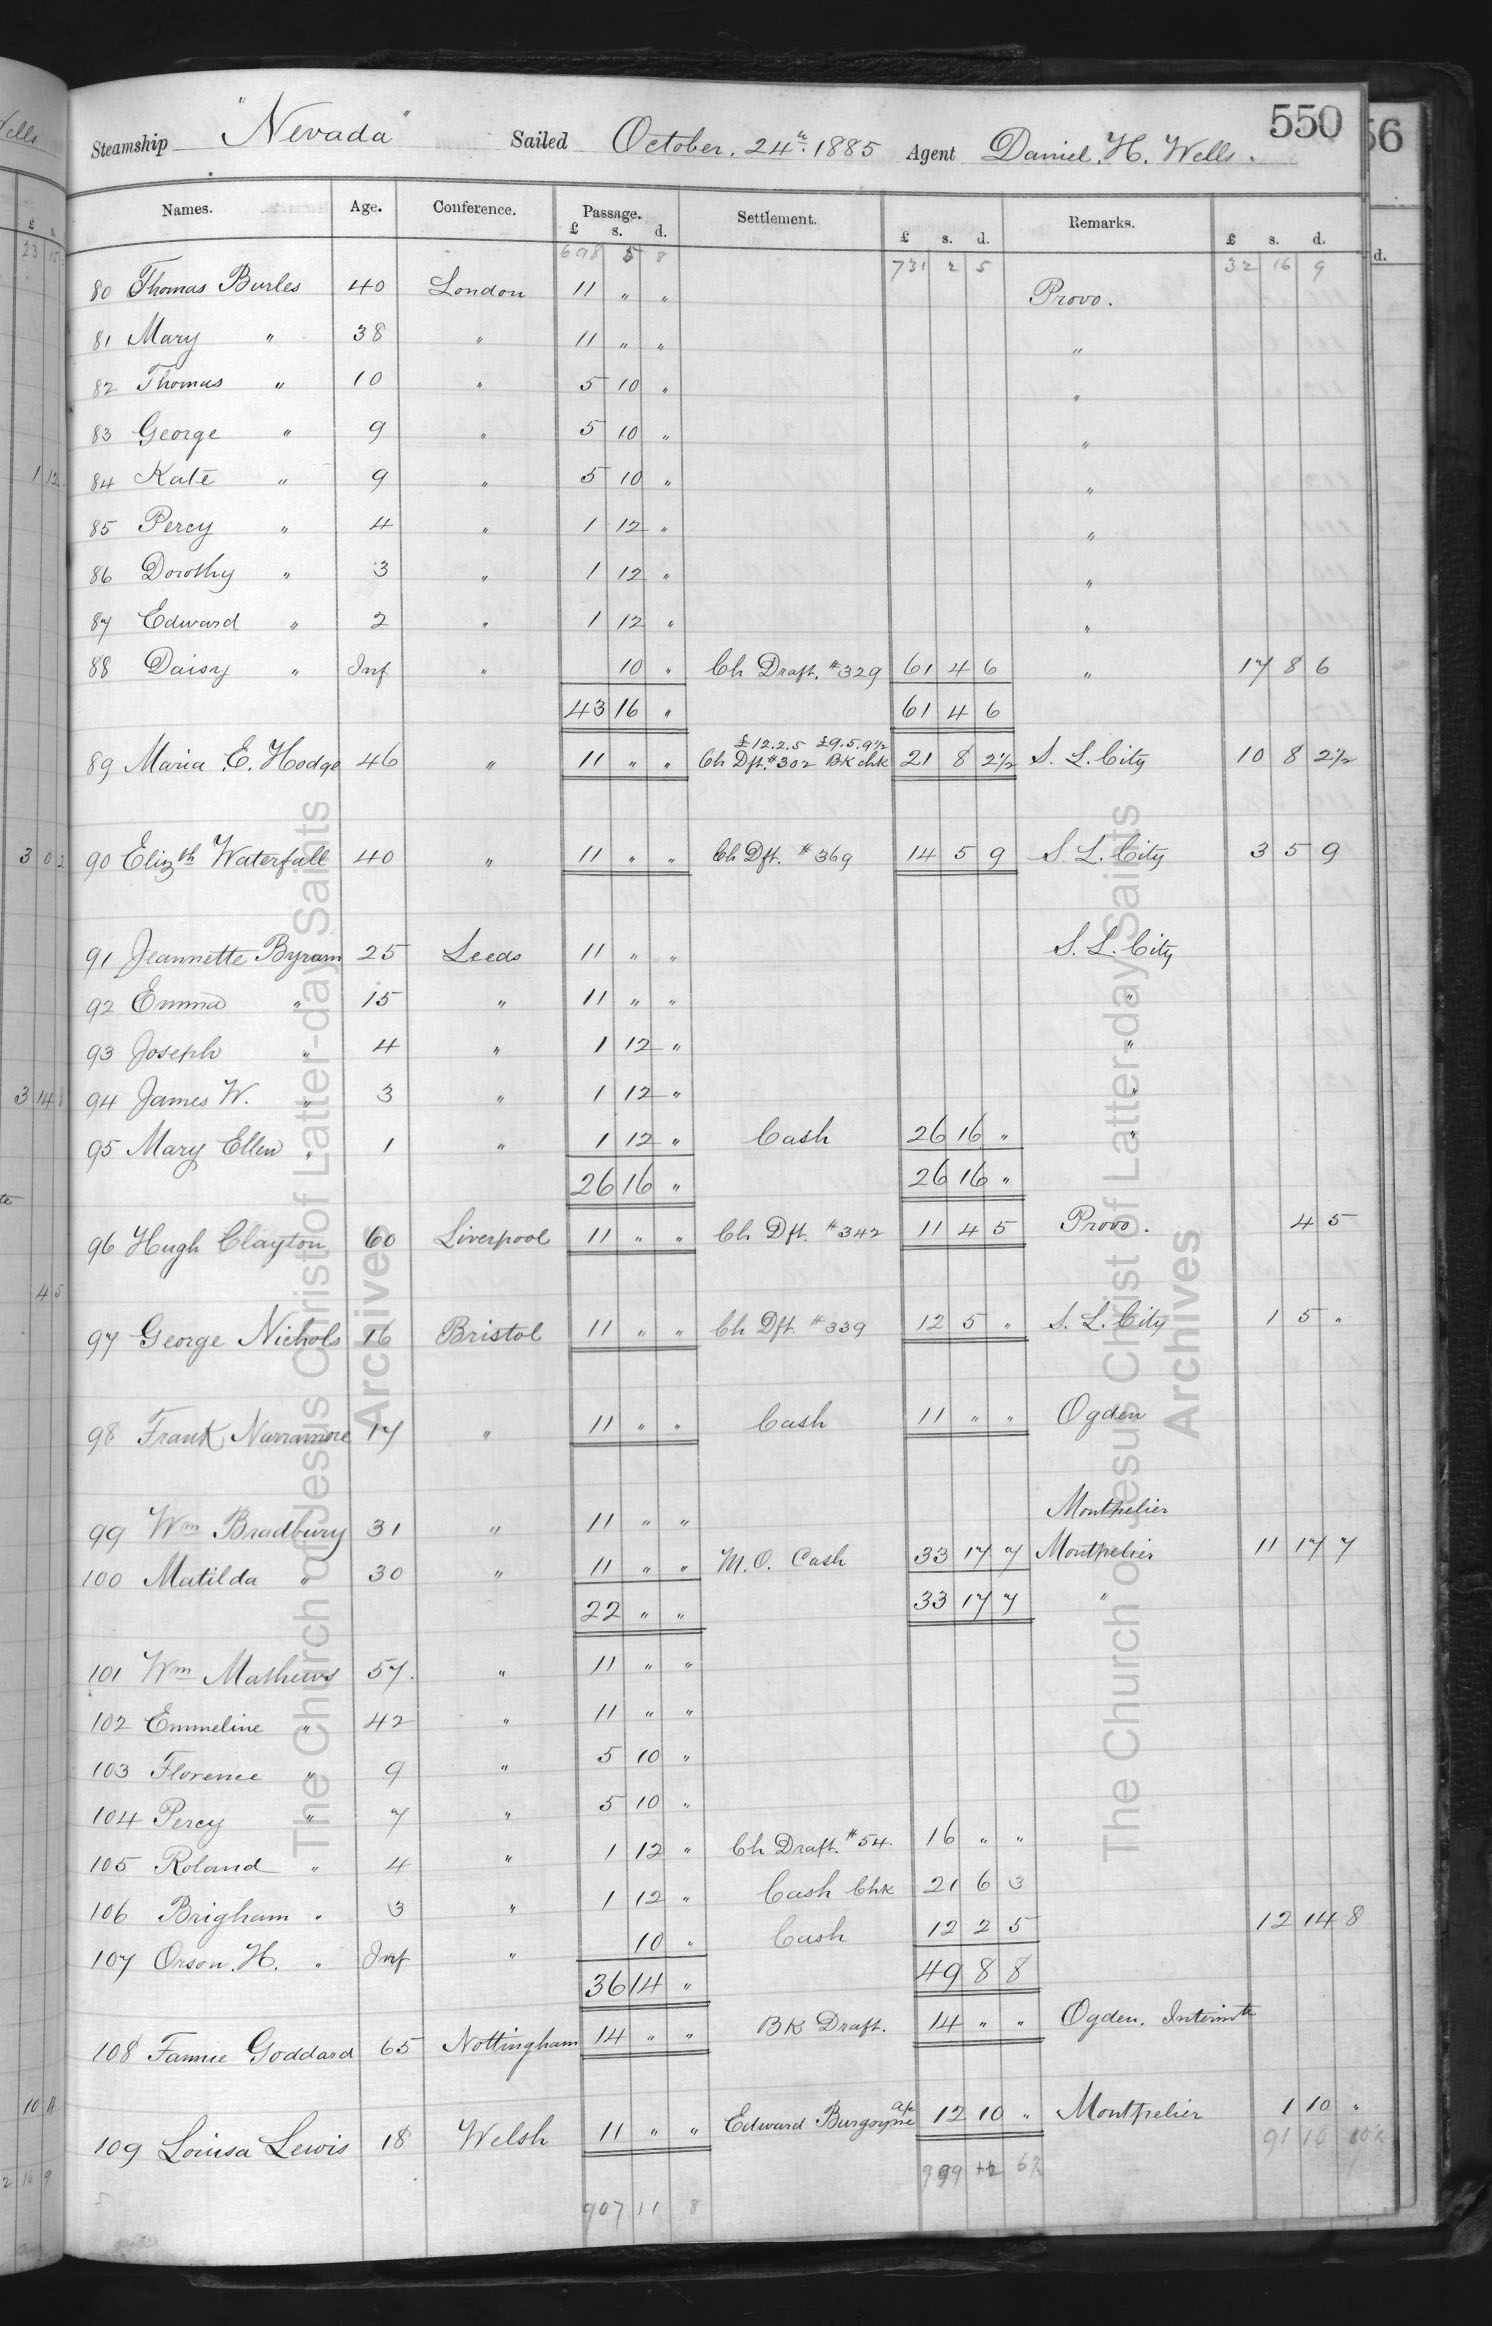 550
56
Steamship "Nevada" Sailed October. 24th. 1885 Agent Daniel. H. Wells.
Names. Age. Conference. Passage. Settlement. Remarks.
£ s. d. £ s. d. £ s. d.
698 5 8 731 2 5 32 16 9
80 Thomas Burles 40 London 11 " " Provo.
81 Mary " 38 " 11 " " "
82 Thomas " 10 " 5 10 " "
83 George " 9 " 5 10 " "
84 Kate " 9 " 5 10 " "
85 Percy " 4 " 1 12 " "
86 Dorothy " 3 " 1 12 " "
87 Edward " 2 " 1 12 " "
88 Daisy " Inf " 10 " Ch Draft. #329 61 4 6 " 17 8 6
43 16 " 61 4 6
£12.2.5 £9.5.9½
89 Maria E. Hodge 46 " 11 " " Ch Dft. #302 BK chk 21 8 2½ S. L. City 10 8 2½
90 Elizth Waterfall 40 " 11 " " Ch Dft. #369 14 5 9 S. L. City 3 5 9
91 Jeannette Byram 25 Leeds 11 " " S. L. City
92 Emma " 15 " 11 " " "
93 Joseph " 4 " 1 12 " "
94 James W. " 3 " 1 12 " "
95 Mary Ellen " 1 " 1 12 " Cash 26 16 " "
26 16 " 26 16 "
96 Hugh Clayton 60 Liverpool 11 " " Ch Dft. #342 11 4 5 Provo. 4 5
97 George Nichols 16 Bristol 11 " " Ch Dft. #339 12 5 " S. L. City 1 5 "
98 Frank Narramore 17 " 11 " " Cash 11 " " Ogden
99 Wm Bradbury 31 " 11 " " Montpelier
100 Matilda " 30 " 11 " " M.O. Cash 33 17 7 Montpelier 11 17 7
22 " " 33 17 7 "
101 Wm Mathews 57. " 11 " "
102 Emmeline " 42 " 11 " "
103 Florence " 9 " 5 10 "
104 Percy " 7 " 5 10 "
105 Roland " 4 " 1 12 " Ch Draft. #54. 16 " "
106 Brigham " 3 " 1 12 " Cash Chk 21 6 3
107 Orson. H. " Inf " 10 " Cash 12 2 5 12 14 8
36 14 " 49 8 8
108 Fannie Goddard 65 Nottingham 14 " " BK Draft. 14 " " Ogden. Intermte
109 Louisa Lewis 18 Welsh 11 " " Edward Burgoyne a/c 12 10 " Montpelier 1 10 "
91 16
907 11 8
The Church of Jesus Christ of Latter-day Saints
Archives
The Church of Jesus Christ of Latter-day Saints
Archives